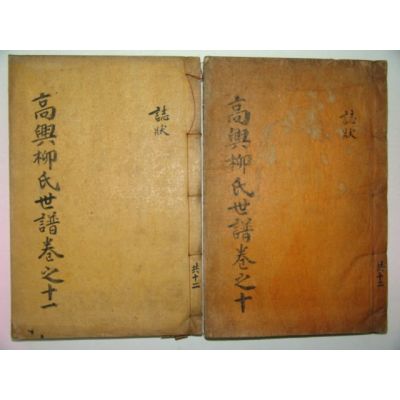 高興柳氏世譜卷之十
誌狀
共十二
高興柳氏世譜卷之十一
誌狀
共十二